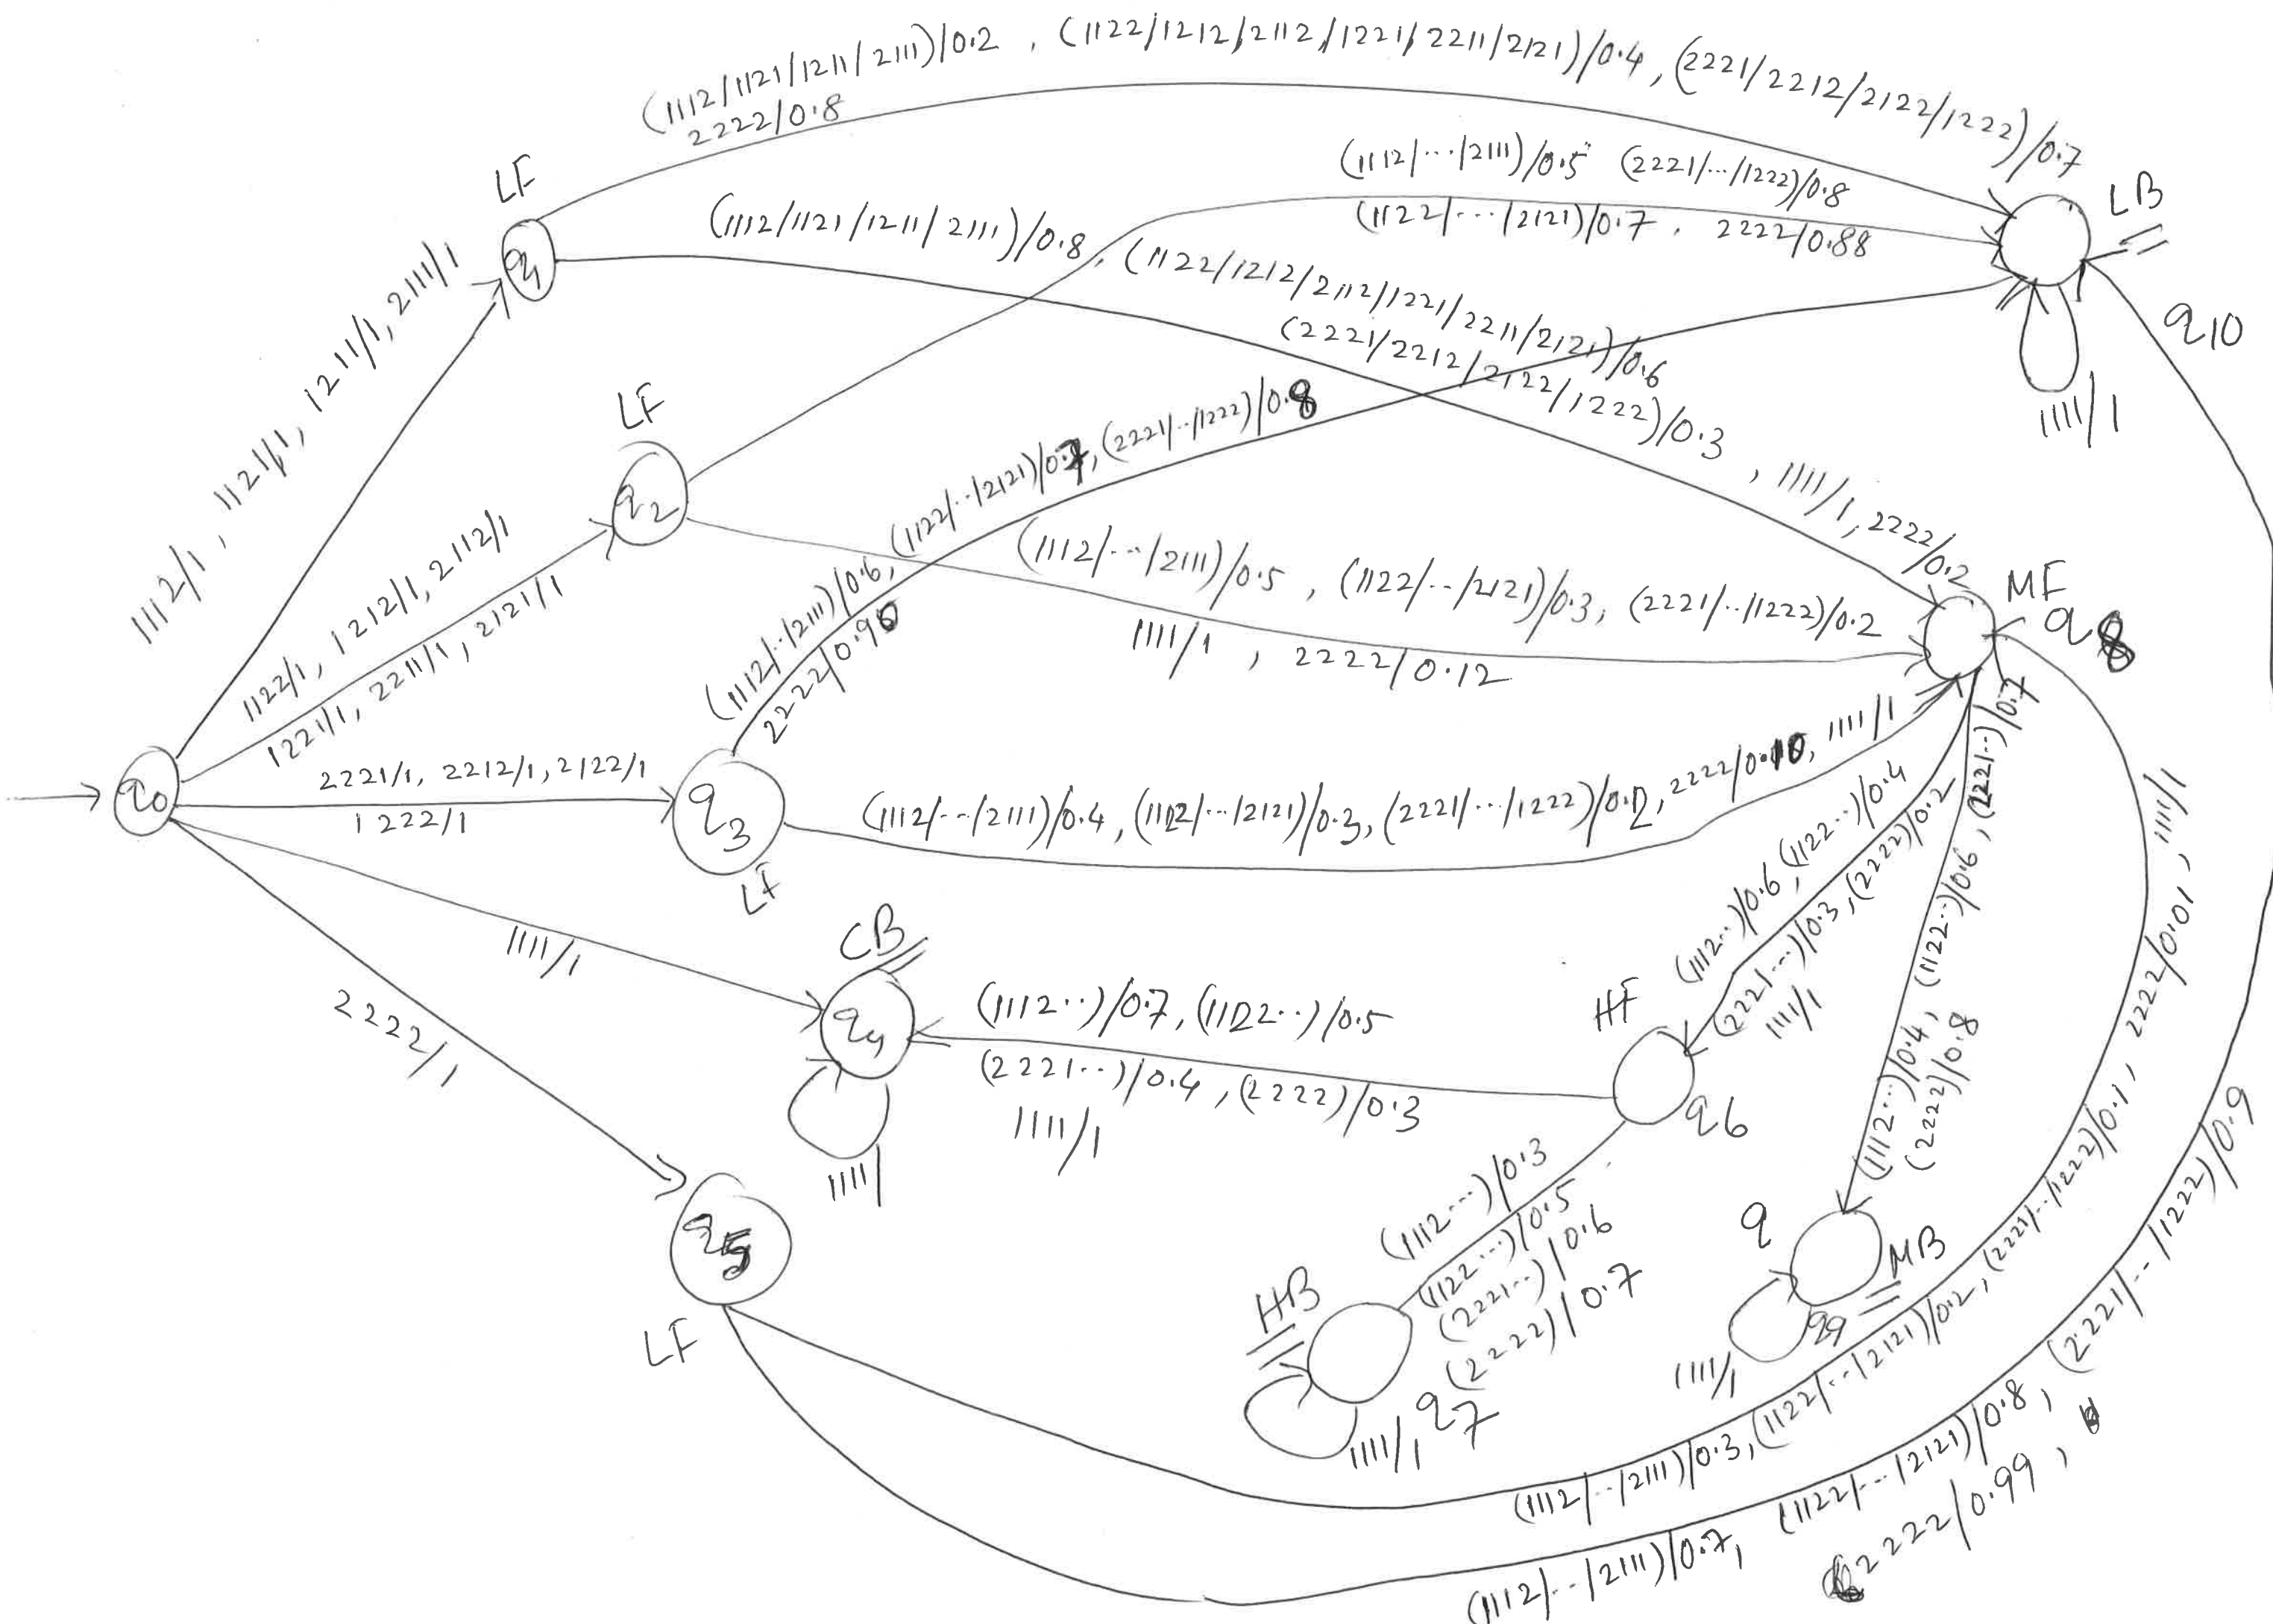 (1112/1121/1211/2111)/0.2 , (1122/1212/2112/1221/2211/2121)/0.4, (2221/2212/2122/1222)/0.7
2222/0.8
LF
q1
(1112/1121/1211/2111)/0.8, (1122/1212/2112/1221/2211/2121)/0.6
(2221/2212/2122/1222)/0.3 , 1111/1, 2222/0.2
(1112/···/2111)/0.5 (2221/··/1222)/0.8
(1122/···/2121)/0.7, 2222/0.88
LB
q10
1111/1
1112/1, 1121/1, 1211/1, 2111/1
LF
q2
1122/1, 1212/1, 2112/1
1221/1, 2211/1, 2121/1
(1112/··/2111)/0.6, (1122/··/2121)/0.7, (2221/··/1222)/0.8
2222/0.90
(1112/···/2111)/0.5 , (1122/··/2121)/0.3, (2221/··/1222)/0.2
1111/1 , 2222/0.12
MF
q8
q0
2221/1, 2212/1, 2122/1
1222/1
q3
LF
(1112/··/2111)/0.4, (1122/···/2121)/0.3, (2221/···/1222)/0.2, 2222/0.10, 1111/1
1111/1
CB
q4
1111/
(1112··)/0.7, (1122··)/0.5
(2221··)/0.4, (2222)/0.3
1111/1
HF
q6
(1112··)/0.6, (1122··)/0.4
(2221···)/0.3, (2222)/0.2
1111/1
(1112··)/0.4, (1122··)/0.6, (2221··)/0.7
(2222)/0.8
2222/1
q5
LF
(1112···)/0.3
(1122···)/0.5
(2221··)/0.6
(2222)/0.7
HB
1111/1
q7
q
MB
q9
1111/1
(1112/··/2111)/0.3, (1122/··/2121)/0.2, (2221/··/1222)/0.1, 2222/0.01, 1111/1
(1112/··/2111)/0.7, (1122/··/2121)/0.8, (2221/··/1222)/0.9
2222/0.99,